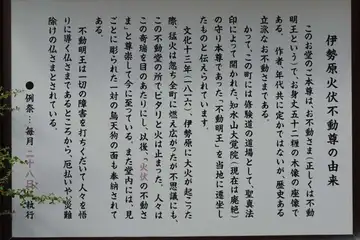 伊勢原火伏不動尊の由来
このお堂のご本尊は、お不動さま(正しくは不動
明王といって、お身丈五十二糎の木像の座像で
ある。作者、年代共に定かではないが、歴史ある
立派なお不動さまである。
かって、この町には修験道の道場として、聖真法
印によって開かれた「知水山大覚院(現在は廃絶)
の守り本尊であった「不動明王」を当地に遷坐し
たものと伝えられています。
文化十三年(一八一六)、伊勢原に大火が起こった
際、猛火は忽ち全町に燃え広がったが不思議にも、
この不動堂の所でピタリと火は止まった。人々は
この奇瑞を目のあたりにし、以後、「火伏の不動さ
ま」と尊崇して今に至っている。また堂内には、見
ごとに彫られた一対の烏天狗の面も奉納されて
ある。
不動明王は一切の障害を打ちくだいて人々を悟
りに導く仏さまであるところから、厄払いや災難
除けの仏さまとされている。
●例祭…毎月二十八日に執行